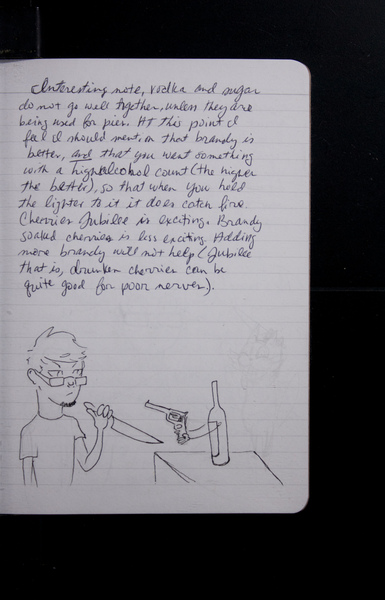 Interesting note, vodka and sugar
do not go well together, unless they are
being used for pies. At this point I
feel I should mention that brandy is
better, and that you want something
with a high alcohol count (the higher
the better), so that when you hold
the lighter to it it does catch fire.
Cherries Jubilee is exciting. Brandy
soaked cherries is less exciting. Adding
more brandy will not help (Jubilee
that is, drunken cherries can be
quite good for poor nerves).